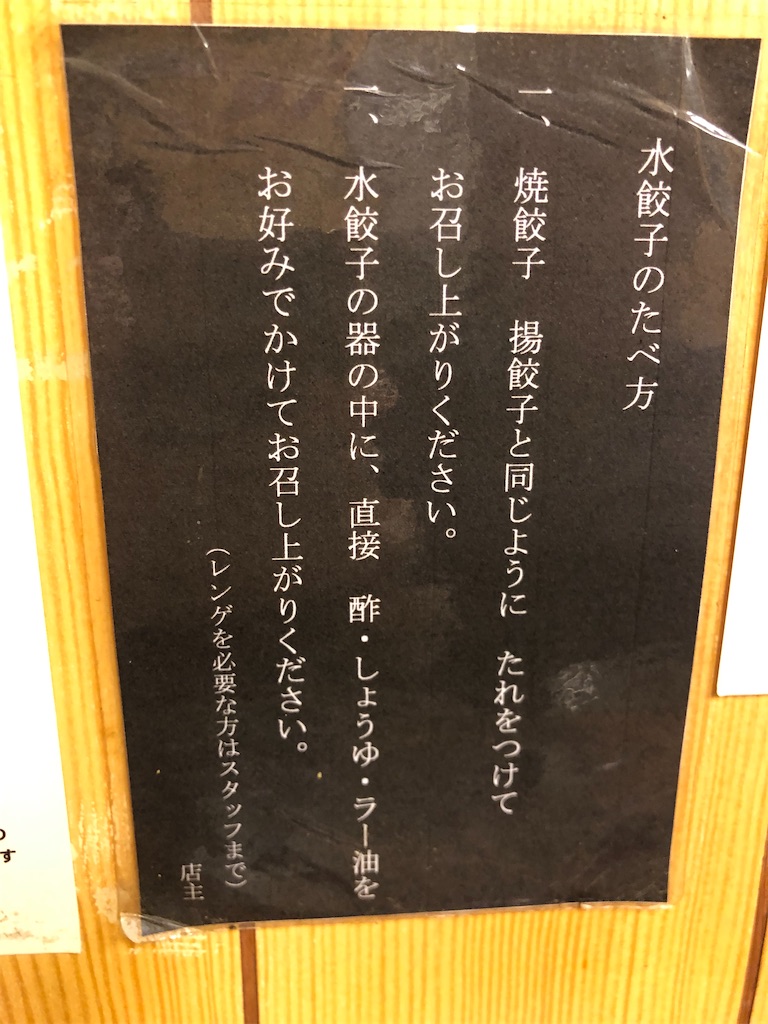 水餃子のたべ方
一、焼餃子　揚餃子と同じように　たれをつけて
お召し上がりください。
一、水餃子の器の中に、直接　酢・しょうゆ・ラー油を
お好みでかけてお召し上がりください。
（レンゲを必要な方はスタッフまで）
店主
す